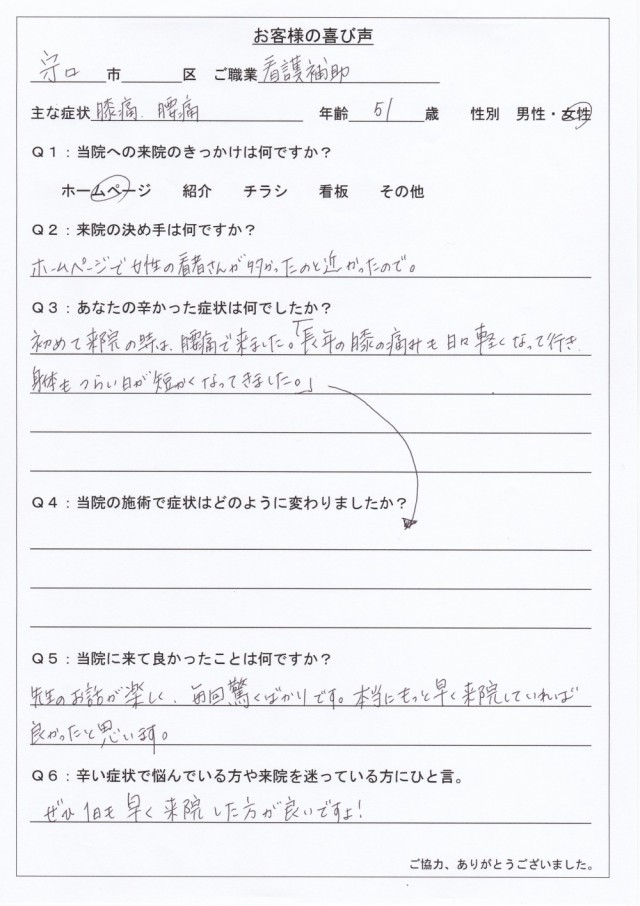 お客様の喜び声
守口市 区 ご職業 看護補助
主な症状 膝痛、腰痛 年齢 51 歳 性別 男性・女性
Q1：当院への来院のきっかけは何ですか？
ホームページ 紹介 チラシ 看板 その他
Q2：来院の決め手は何ですか？
ホームページで女性の看者さんが多かったのと近かったので。
Q3：あなたの辛かった症状は何でしたか？
初めて来院の時は、腰痛で来ました。「長年の膝の痛みも日々軽くなって行き、
身体もつらい日が短かくなってきました。」
Q4：当院の施術で症状はどのように変わりましたか？
Q5：当院に来て良かったことは何ですか？
先生のお話が楽しく、毎回驚くばかりです。本当にもっと早く来院していれば
良かったと思います。
Q6：辛い症状で悩んでいる方や来院を迷っている方にひと言。
ぜひ1日も早く来院した方が良いですよ！
ご協力、ありがとうございました。